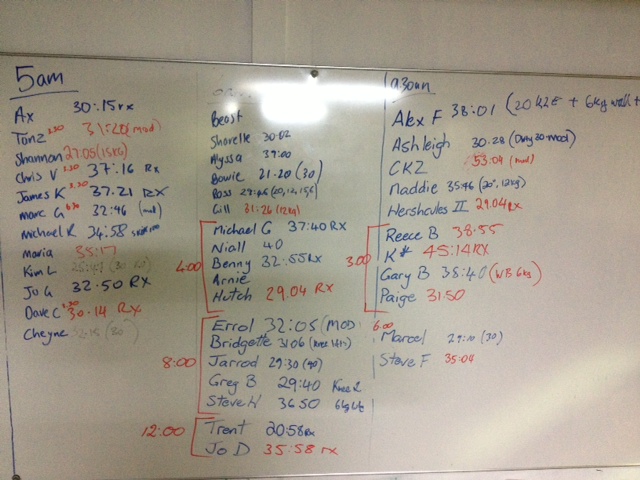 5am
Ax 30:.15 rx
Tanz 1.30 31:20 (mod)
Shannon 27.05 (15kg)
Chris V 2.30 37:.16 Rx
James K 3.30 37.21 RX
Marc G 6.30 32:46 (mod)
Michael R 34:58
Maria 35:17
Kim L
Ju G 32.50 RX
Dave C 1.30 30.14 RX
Cheyne 32:15 (30)
Beast
Shorelle 30:02
Alyssa 39:00
Bowie 21.20 (30)
Ross
Gill 31:26 (12kg)
4:00
Michael G 37:40 RX
Niall 40
Benny 32:.55 Rx
Arnie
Hutch 29.04 RX
8:00
Errol 32:05 (MOD)
Bridgette 31:06
Jarrod 29:30 (40)
Greg B 29:40
Steve W 36.50 6kg wb
12:00
Trent 20:58 Rx
Jo D 35:58 rx
930am
Alex F 38:01 (20 K2E + 6kg wall +
Ashleigh 30.28
CKZ 53:04 (mod)
Maddie 35:46 (20", 12kg)
Hershcules II 29.04 RX
3:00
Reece B 38:55
K# 45:14 RX
Gary B 38:40 (WB 6kg)
Paige 31.50
6:00
Marcel 29:10 (30)
Steve F 35:04